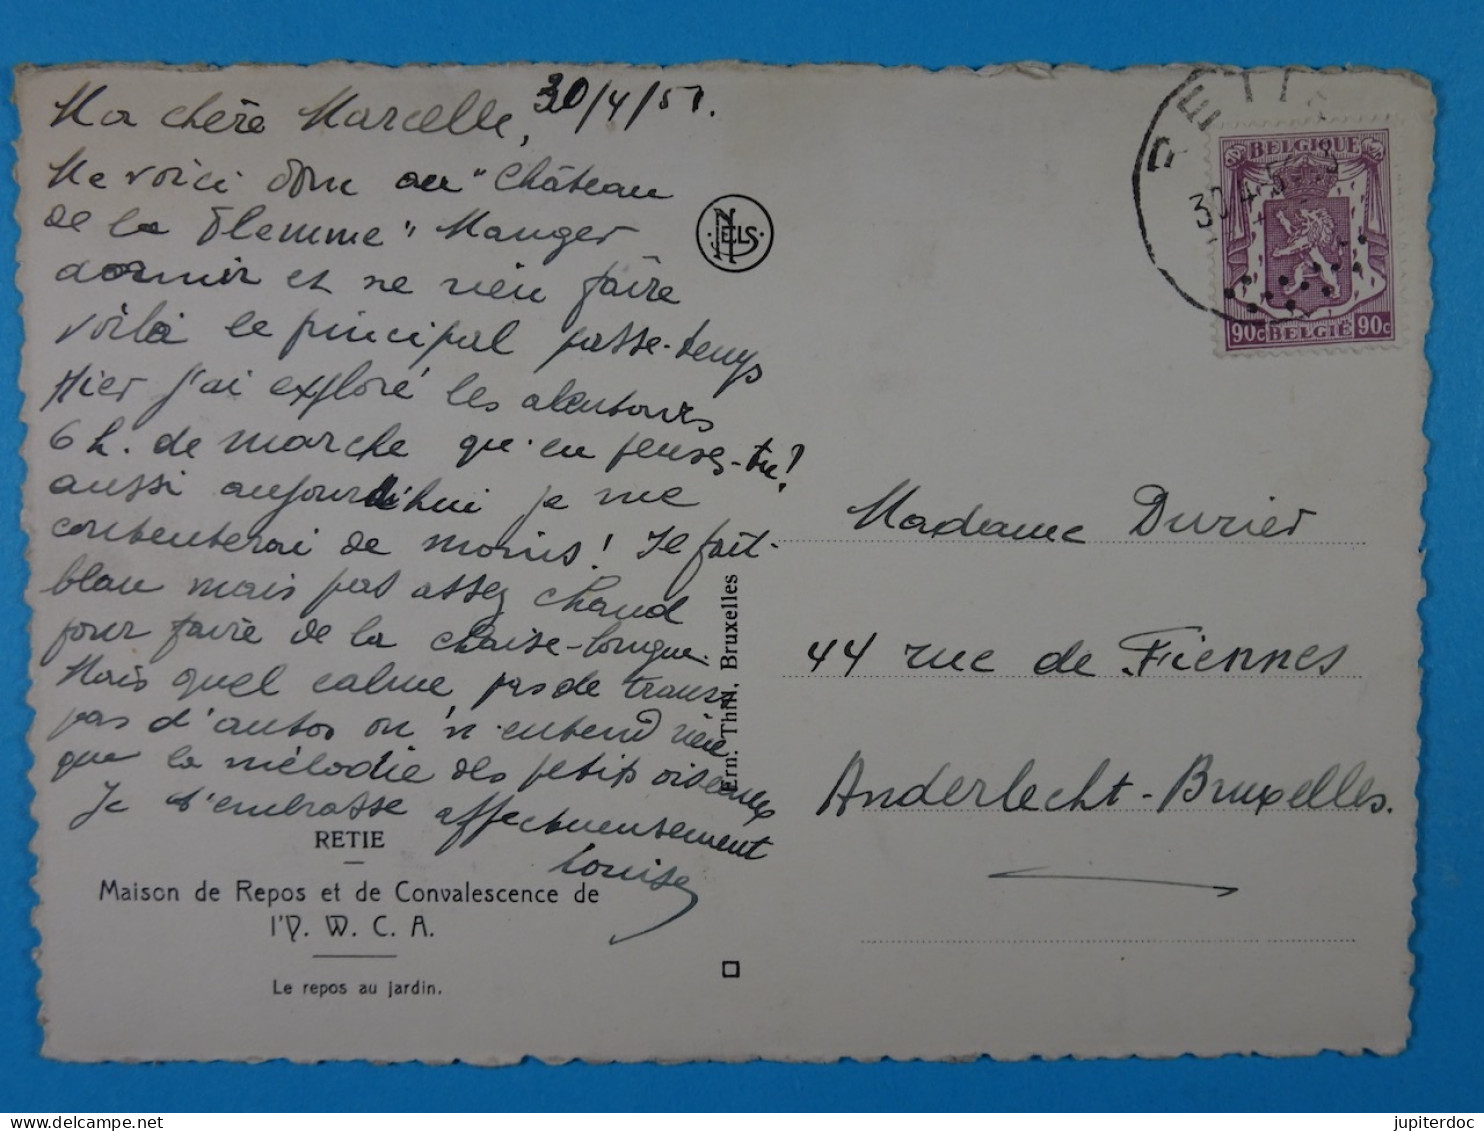 Ma chère Marcelle, 30/4/51.
Me voici donc au "Château
de la Flemme" Manger
dormir et ne rien faire
voilà le principal passe-temps
Hier j'ai exploré les alentours
6 h. de marche qu'en penses-tu?
aussi aujourd'hui je me
contenterai de moins! Il fait
beau mais pas assez chaud
pour faire de la chaise-longue.
Mais quel calme pas de trams
pas d'autos on n'entend rien
que la mélodie des petits oiseaux
Je t'embrasse affectueusement
Louise
RETIE
Maison de Repos et de Convalescence de
l'Y. W. C. A.
Le repos au jardin.
NELS
Ern. Thill, Bruxelles
RETIE
BELGIQUE
90c BELGIË 90c
Madame Durier
44 rue de Fiennes
Anderlecht-Bruxelles.
jupiterdoc